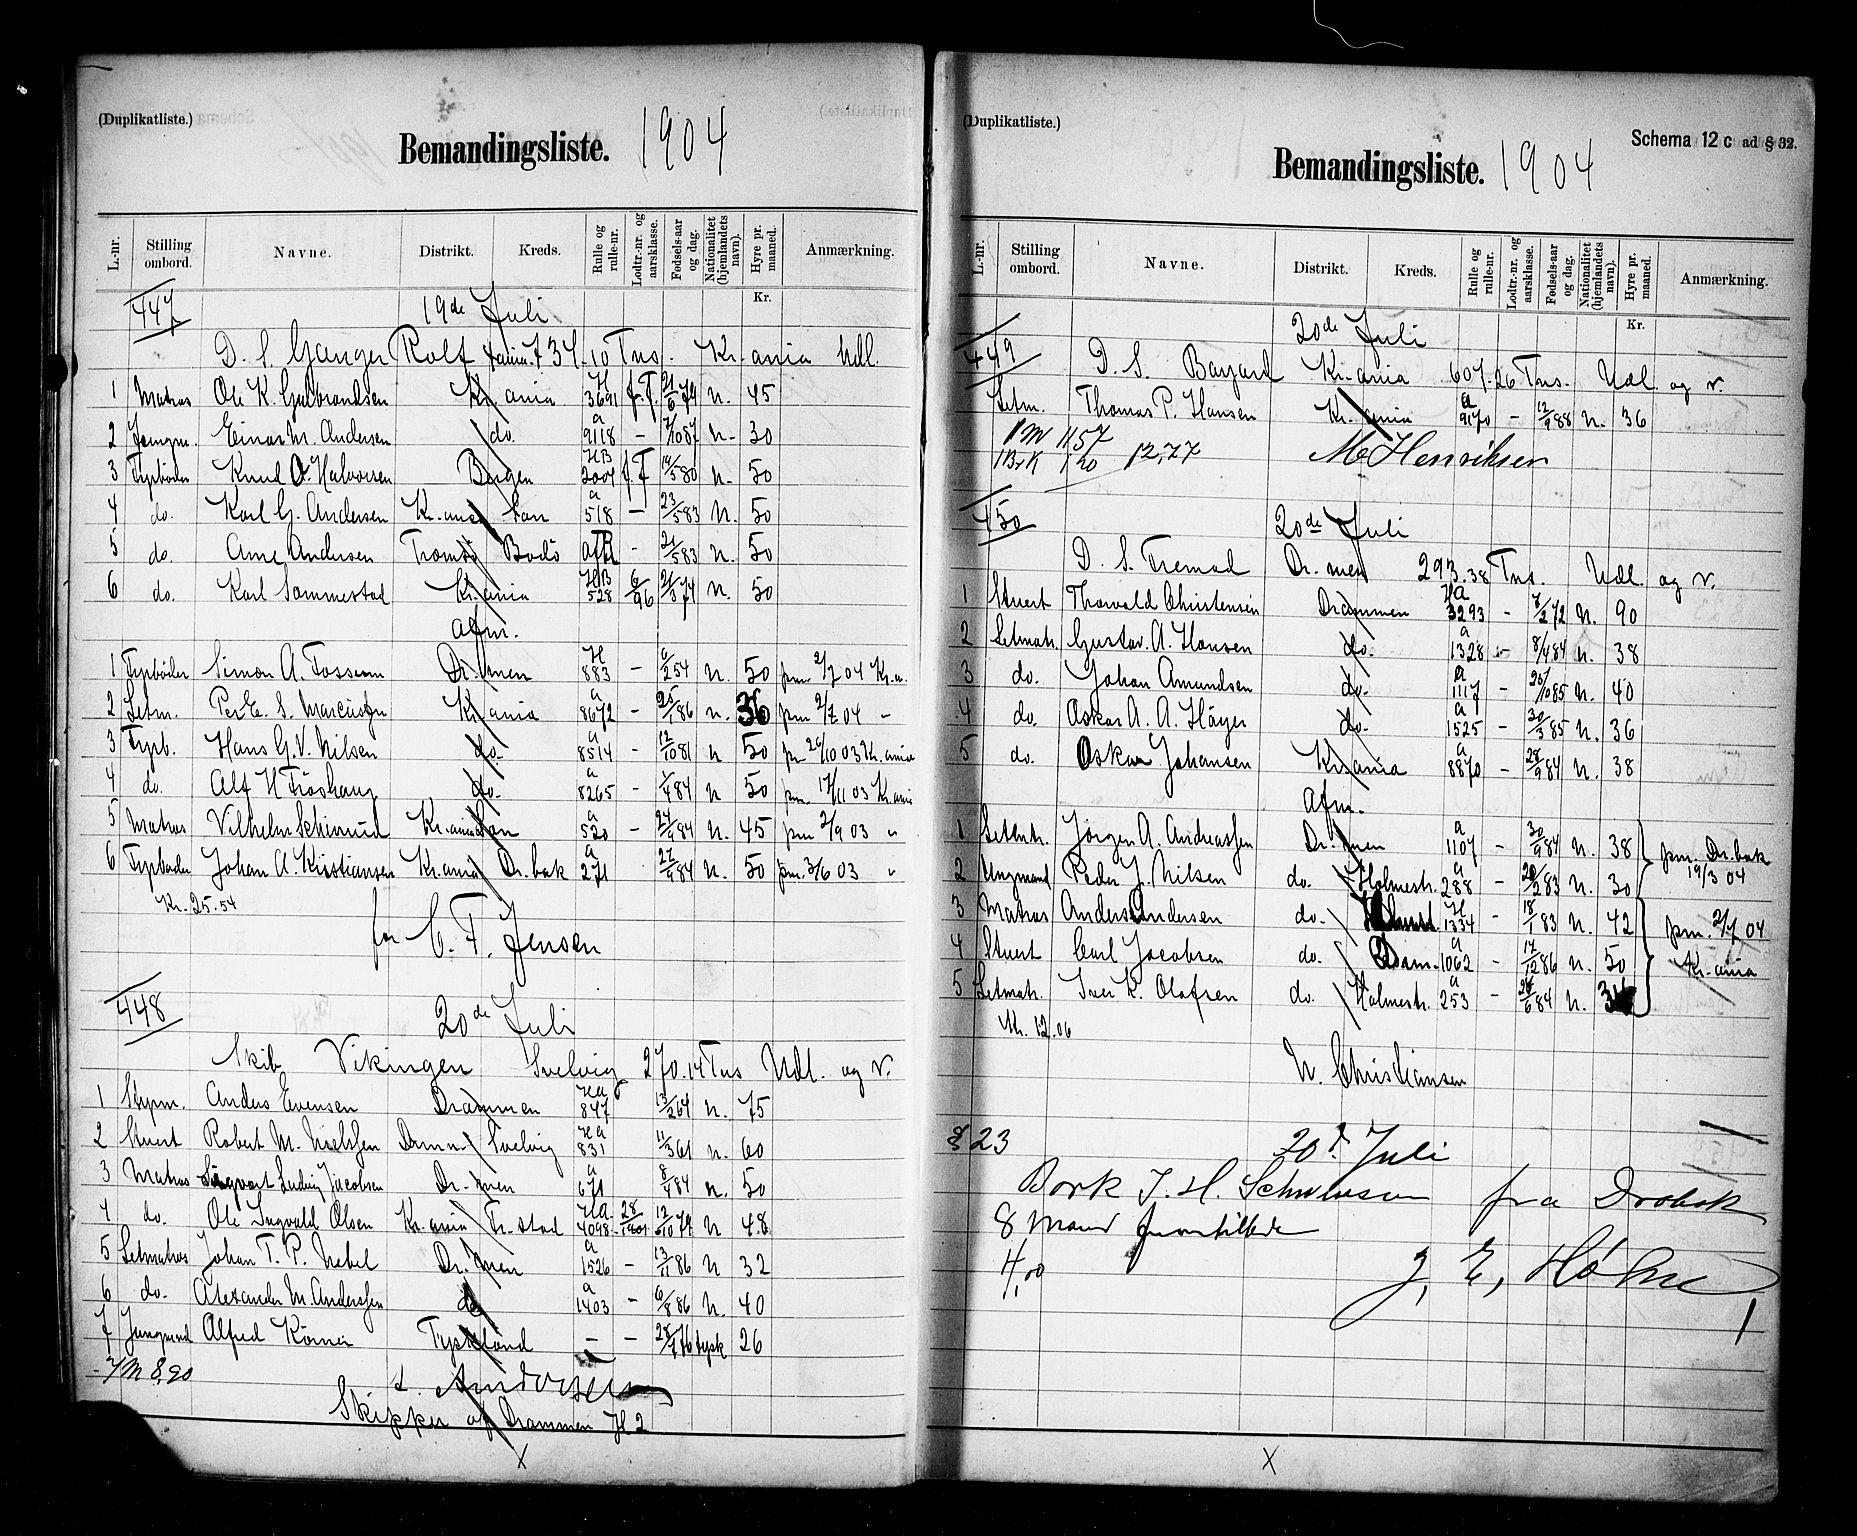 (Duplikatliste.)
Bemandingsliste. 1904
L.-nr. Stilling ombord. Navne. Distrikt. Kreds. Rulle og rulle-nr. Lodtr.-nr. og aarsklasse. Fødsels-aar og dag. Nationalitet (hjemlandets navn). Hyre pr. maaned. Anmærkning.
Kr.
447 19de Juli
D. S. Ganger Rolf Kr.ania Udl.
1 Matros Ole K. Gulbrandsen Kr. ania H 3691 f.F. 21/6 79 N. 45
2 Jungm. Einar M. Andersen do. a 9118 - 7/10 87 N. 30
3 Fyrbøder Knud O. Halvorsen Bergen HB 2007 f.F 14/5 80 N. 50
4 do. Karl G. Andersen Kr.ansd San a 518 - 23/5 83 N. 50
5 do. Arne Andersen Tromsö Bodö - 21/5 83 N. 50
6 do. Karl Sommestad Kr.ania HB 528 6/96 21/3 74 N. 50
Afm.
1 Fyrbøder Simon A. Fossum Dr.men H 883 - 9/2 54 N. 50 pm 2/7 04 Kr.a.
2 Letm. Per E. S. Marcussen Kr.ania a 8672 - 25/1 86 N. 36 pm 2/7 04 "
3 Fyrb. Hans G. V. Nilsen do. a 8514 - 12/10 81 N 50 pr 26/10 03 Kr.ania
4 do. Alf H Fröshaug do. a 8265 - 1/4 84 N 50 pm. 17/11 03 Kr.ania
5 Matros Vilhelm Schinrud a 520 - 24/9 84 N. 45 pm 2/9 03 "
6 Fyrbøder Johan A. Kristiansen Kr.ania Dr.bak a 271 27/9 84 N. 50 pm. 3/6 03 "
Kr. 25.54
for C. F. Jensen
448 20de Juli
Skib Vikingen Svelvig 270.14 Tns Udl. og v.
1 Styrm. Anders Evensen Drammen Ha 847 13/2 64 N. 75
2 Stuert Robert M. Nielssen Drmn. Svelvig Ha 831 11/3 61 N. 60
3 Matros Sigvart Ludvig Jacobsen Dr.men a 671 8/4 84 N. 50
4 do. Ole Ingvald Olsen Kr.ania Fr.stad Ha 4098 28/1901 12/10 79 N 48
5 Letmatros Johan T. P. Nebel Dr.men a 1526 - 13/11 86 N 32
6 do. Alexander M. Anderssen do a 1403 - 6/8 86 N. 40
7 Jungmand Alfred Körner Tyskland - - 28/1 76 tysk 26
7 M 8,90
L. Andersen
Skipper af Drammen H 2
X
(Duplikatliste.)
Schema 12 c ad § 32.
Bemandingsliste. 1904
L.-nr. Stilling ombord. Navne. Distrikt. Kreds. Rulle og rulle-nr. Lodtr.-nr. og aarsklasse. Fødsels-aar og dag. Nationalitet (hjemlandets navn). Hyre pr. maaned. Anmærkning.
Kr.
20de Juli
449 D. S. Bayard Kr.ania 607.26 Tns. Udl. og v.
Letm. Thomas P. Hansen Kr.ania a 9170 - 12/9 88 N. 36
1 M 11,57
1 B.K 1,20 12,77 M Henriksen
450 20de Juli
D. S. Fremad Dr. men 293.38 Tns. Udl. og v.
1 Stuert Thorvald Christensen Drammen Ha 3293 - 7/2 72 N. 90
2 Letmatr. Gustav A. Hansen do. a 1328 - 8/4 84 N. 38
3 do. Johan Amundsen do. a 1117 - 25/10 85 N. 40
4 do. Oskar A. A. Höyer do. a 1525 - 30/3 85 N. 36
5 do. Oskar Johansen Kr.ania a 8870 - 28/9 84 N. 38
Afm.
1 Letmtr. Jörgen A. Andreassen Dr. men a 1107 - 30/9 84 N. 38 pm. Dr.bak
2 Ungmand Peder J. Nilsen do. Holmestr. a 288 - 20/2 83 N. 30 19/3 04
3 Matros Anders Andersen do. H 1334 - 18/1 83 N. 42 pm. 2/7 04
4 Stuert Carl Jacobsen do. Dram. a 1062 - 17/12 86 N. 50 Kr.ania
5 Letmatr. Iver K. Olafsen do. Holmestr. a 253 - 26/6 84 N. 34
Kr. 12.06
N. Christiansen
§ 23 20d. Juli
Bark J. H. Schwensen fra Drøbak
8 Mand fremstillede
4,00 J. E. Høhne
1
X